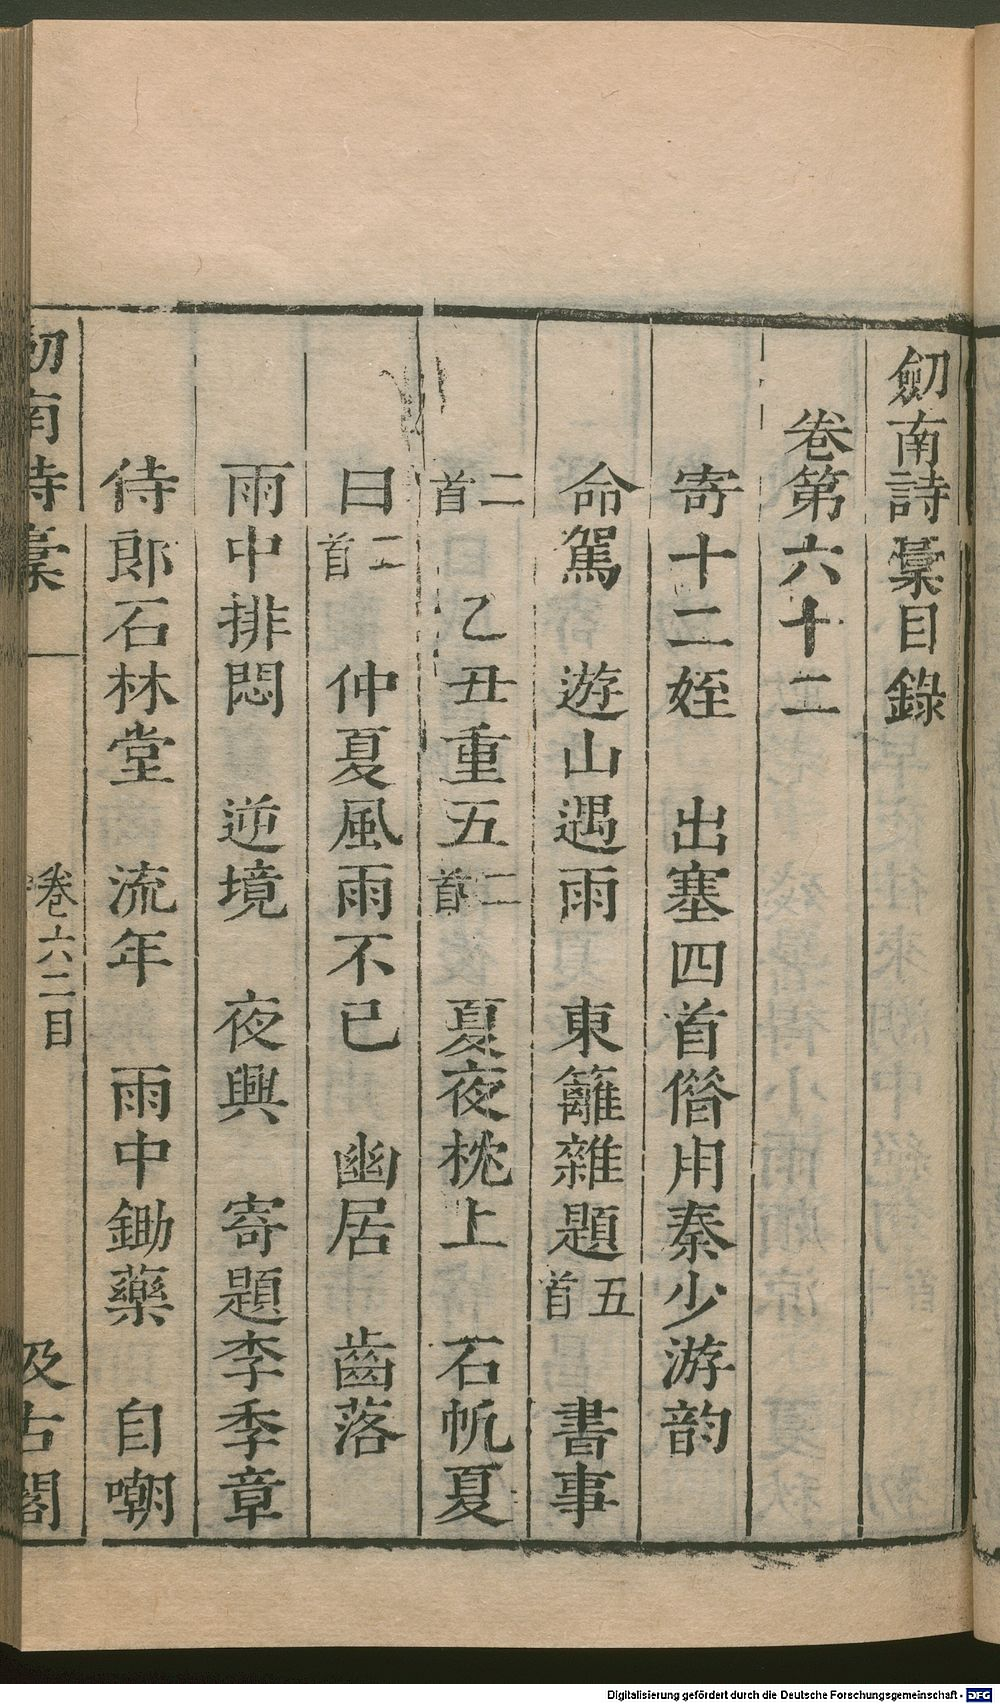 劒南詩稾目錄
卷第六十二
寄十二姪　出塞四首僭用秦少游韵
命駕　遊山遇雨　東籬雜題五首　書事
二首　乙丑重五二首　夏夜枕上　石帆夏
日二首　仲夏風雨不已　幽居　齒落
雨中排悶　逆境　夜興　寄題李季章
侍郎石林堂　流年　雨中鋤藥　自嘲
劒南詩稾　卷六二目　汲古閣
Digitalisierung gefördert durch die Deutsche Forschungsgemeinschaft - DFG